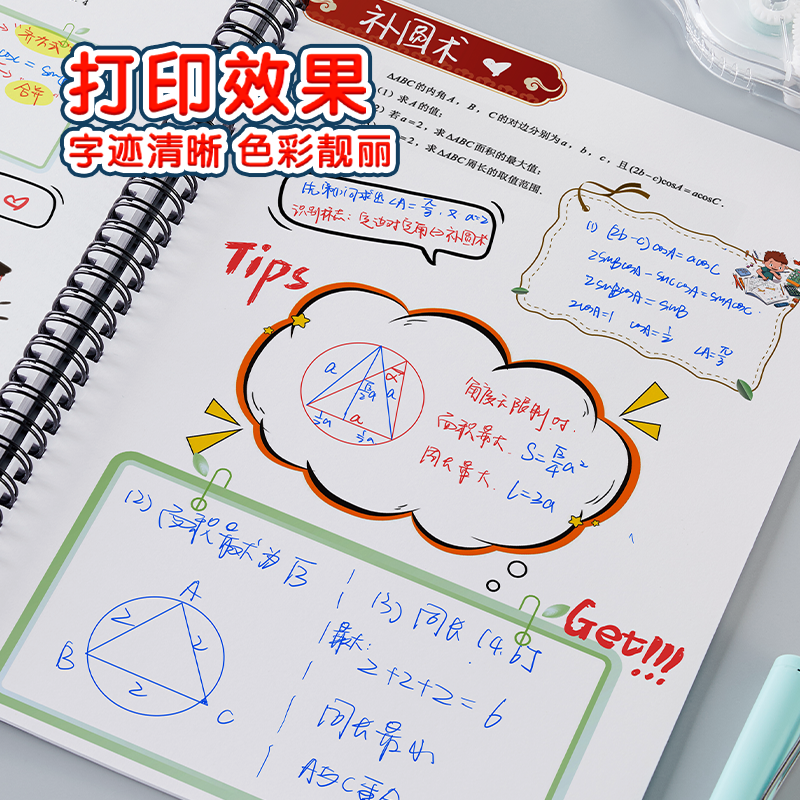 打印效果
字迹清晰 色彩靓丽
合并
补圆术
△ABC的内角A，B，C的对边分别为a，b，c，且(2b−c)cosA=acosC.
(1) 求A的值;
若a=2，求△ABC面积的最大值;
=2，求△ABC周长的取值范围.
由第(1)问求出∠A=π/3，又a=2
识别标志：定边对定角⇔补圆术
(1) (2b-c)cosA=acosC
2sinBcosA-sinCcosA=sinAcosC
2sinBcosA=sinB
2cosA=1 cosA=1/2 ∠A=π/3
Tips
a
√3/2a
a
α
a
1/2a
1/2a
角度无限制时.
面积最大. S=√3/4a²
周长最大. l=3a
(2) 面积最大为√3
(3) 周长 (4,6]
A
2
2
B
2
C
最大:
2+2+2=6
周长最小
A与C重合
Get!!!